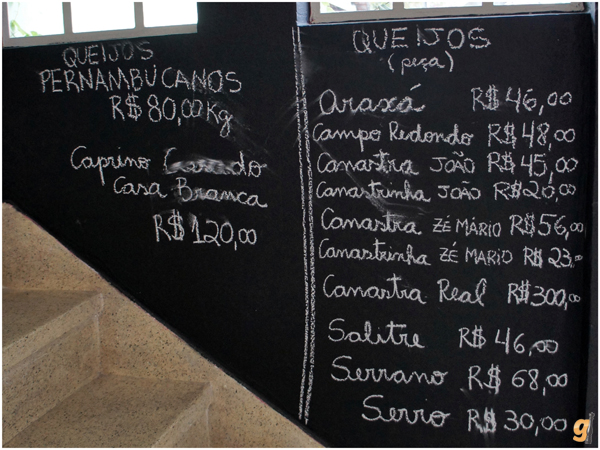 QUEIJOS
PERNAMBUCANOS
R$80,00Kg
Caprino
Casa Branca
R$120,00
QUEIJOS
(peça)
Araxá R$46,00
Campo Redondo R$48,00
Canastra JOÃO R$45,00
Canastrinha JOÃO R$20,00
Canastra ZÉ MÁRIO R$56,00
Canastrinha ZÉ MARIO R$23,00
Canastra Real R$300,00
Salitre R$46,00
Serrano R$68,00
Serro R$30,00
g